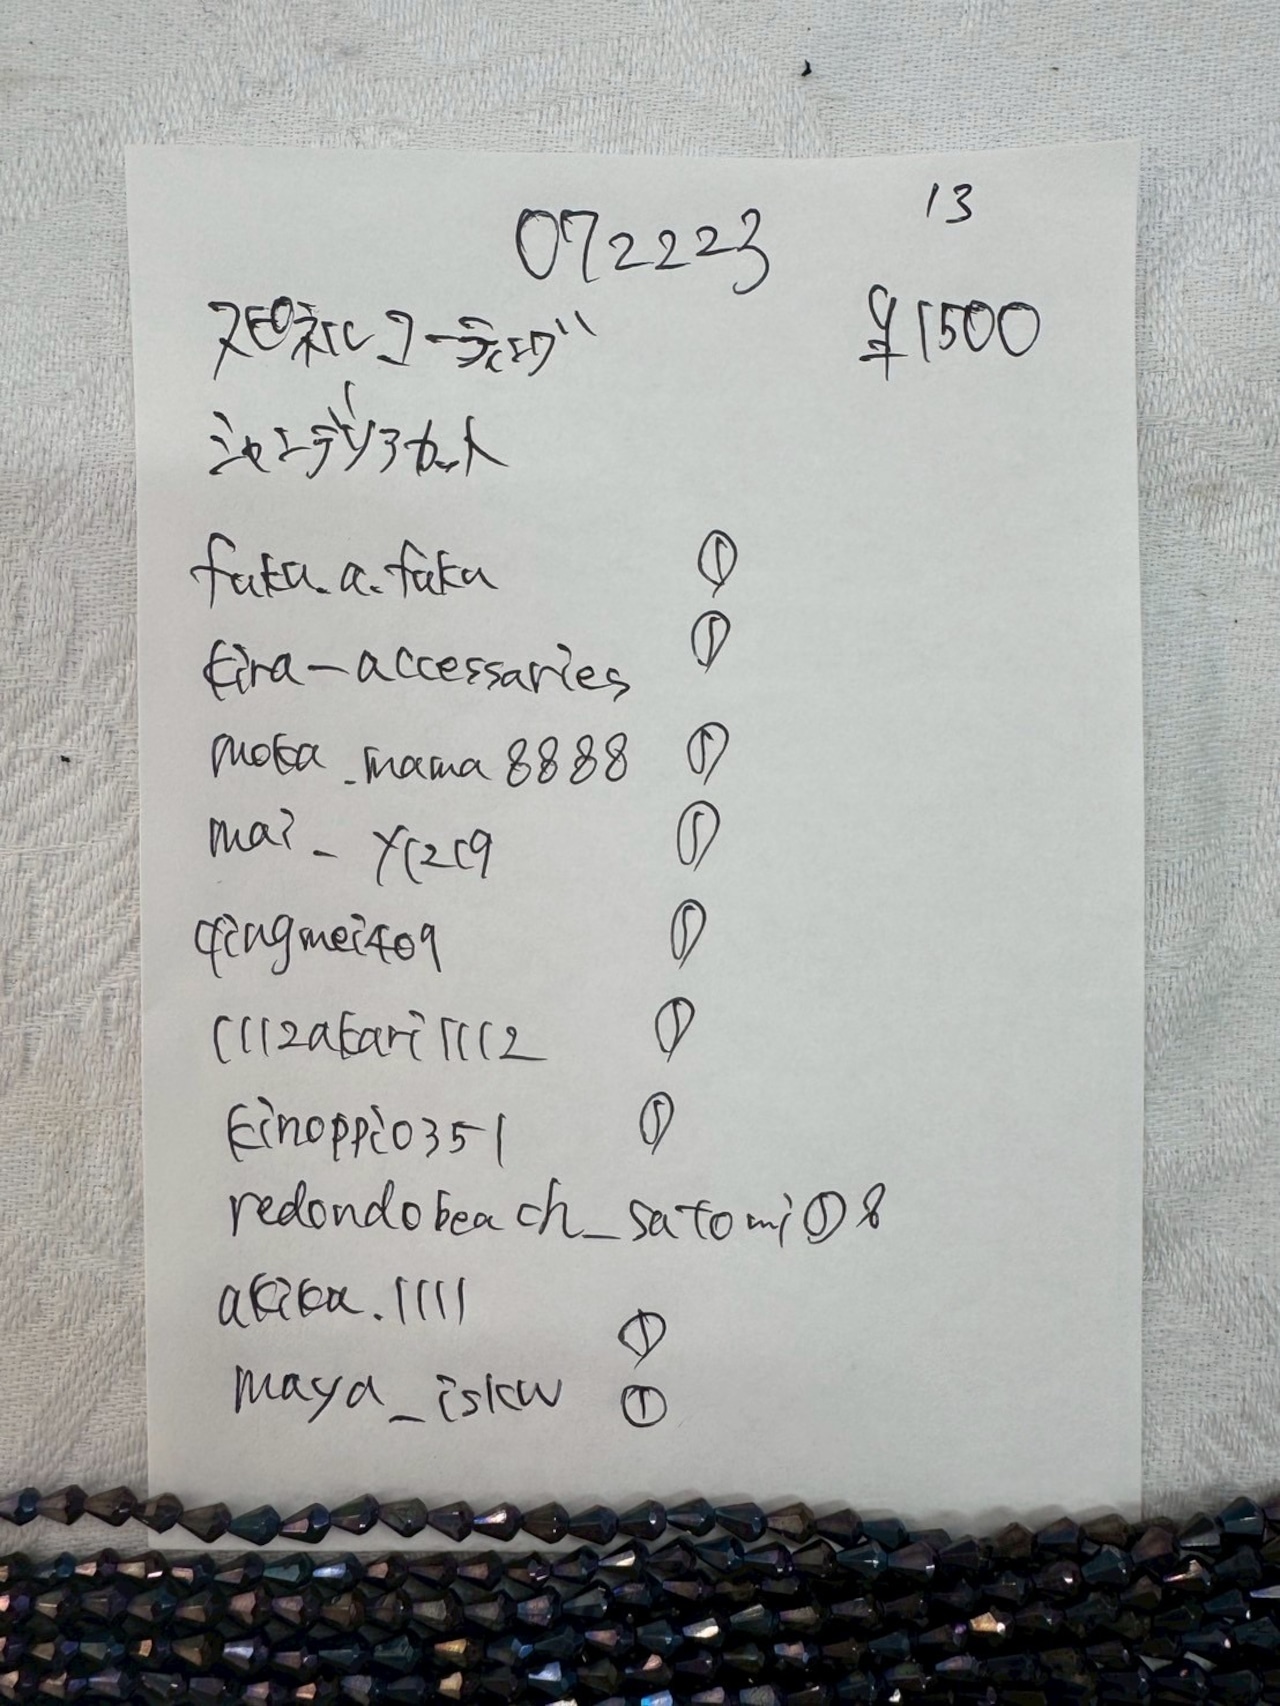 13
072223
スピネルコーティング ¥1500
シャンデリアカット
fuka.a.fuka ①
kira-accessaries ①
moka_mama8888 ①
mai_y1219 ①
qingmei409 ①
1112akari1112 ①
kinoppio351 ①
redondobeach_satomi ① 8
akika.1111 ①
maya_iskw ①